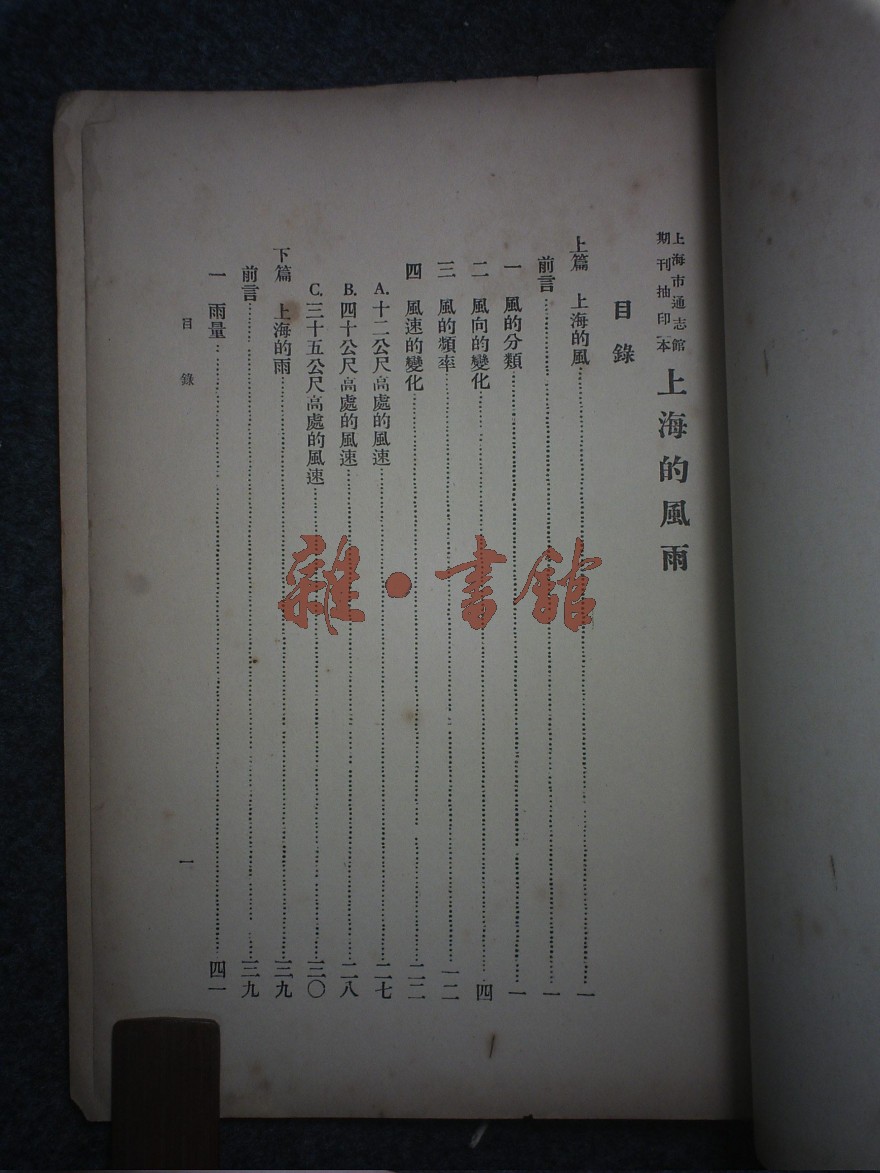 上海市通志館
期刊抽印本
上海的風雨
目錄
上篇 上海的風……一
前言……一
一 風的分類……一
二 風向的變化……四
三 風的頻率……一二
四 風速的變化……二二
A. 十二公尺高處的風速……二七
B. 四十公尺高處的風速……二八
C. 三十五公尺高處的風速……三〇
下篇 上海的雨……三九
前言……三九
一 雨量……四一
目錄
一
雜·書館